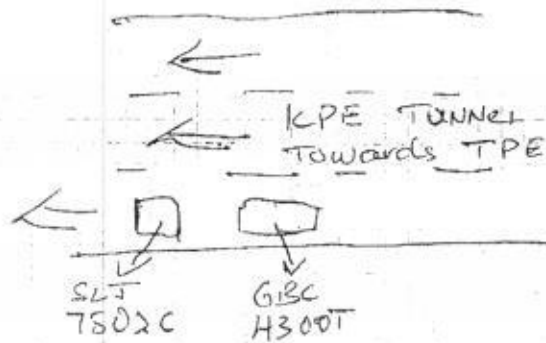 KPE TUNNEL
Towards TPE
SLJ
7502C
GBC
H300T